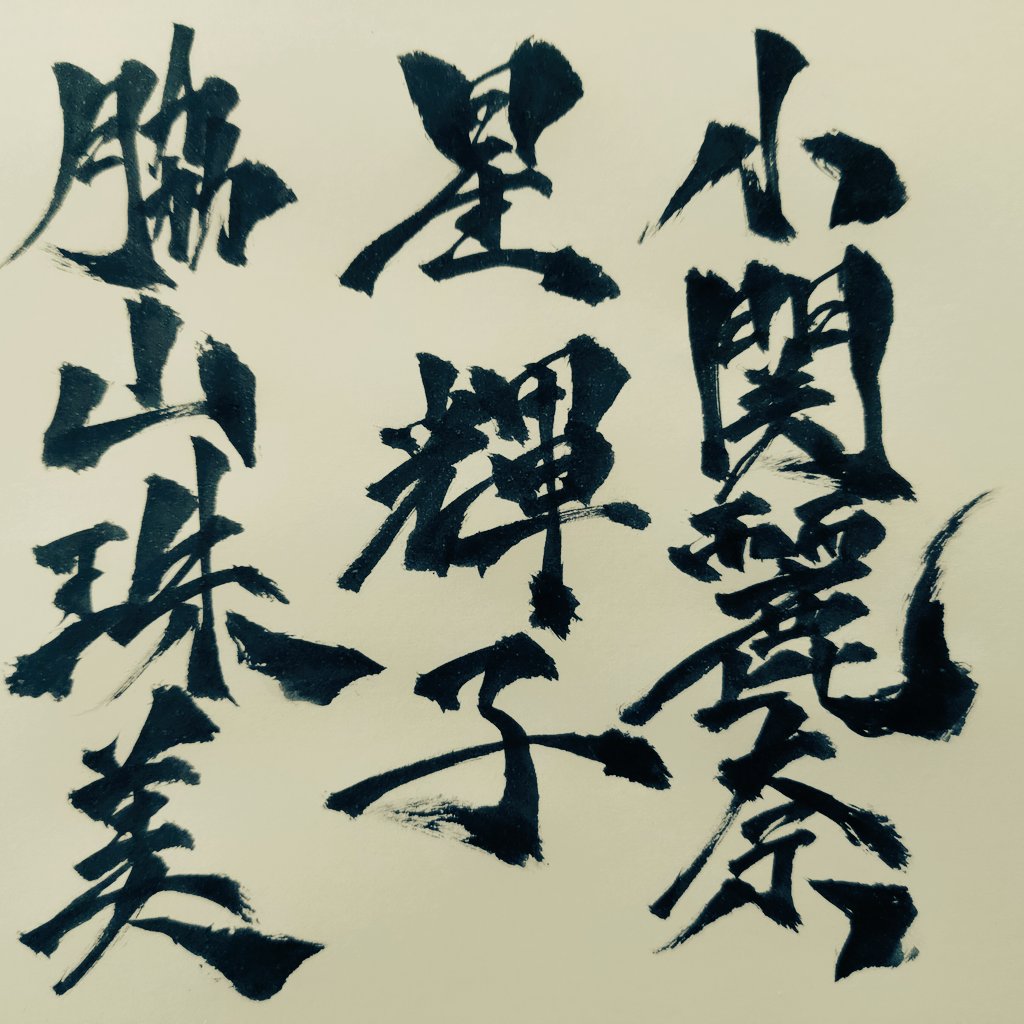 小関麗奈
星輝子
脇山珠美